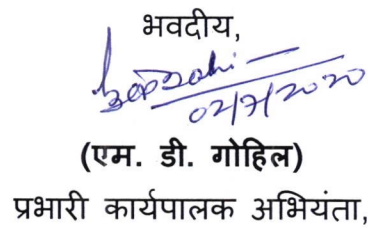 भवदीय,
02/7/2020
(एम. डी. गोहिल)
प्रभारी कार्यपालक अभियंता,